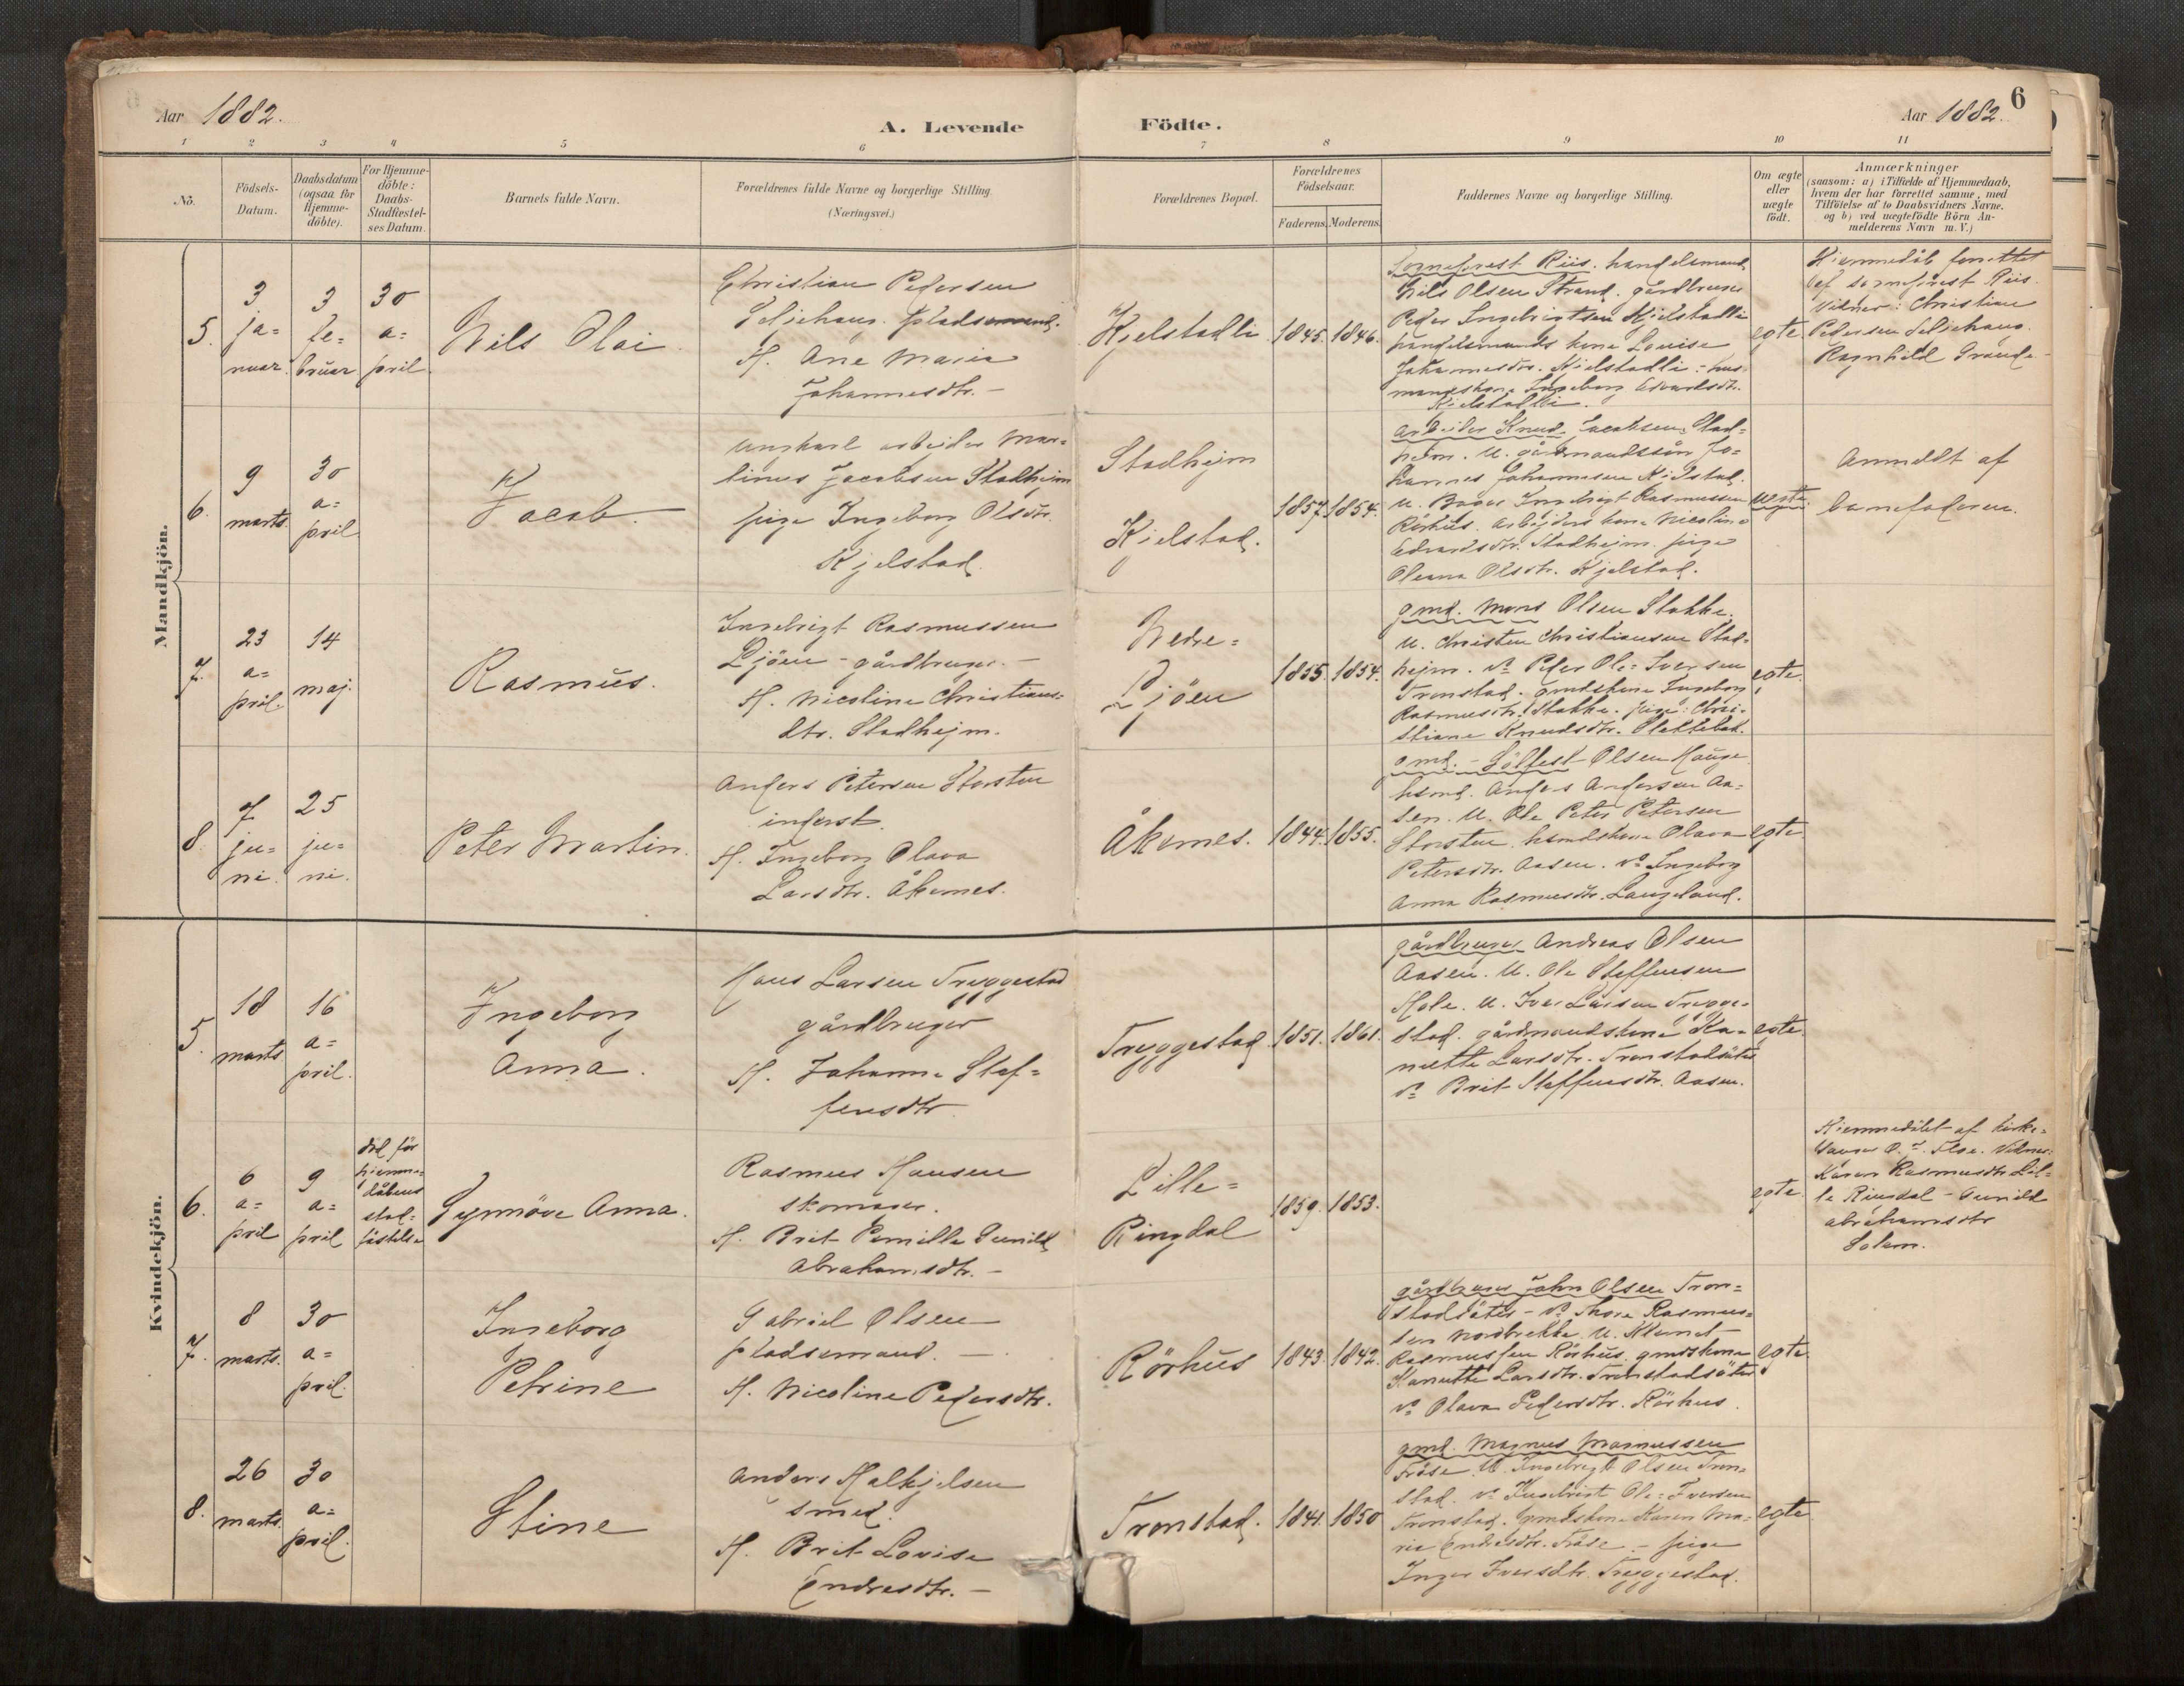 Aar 1882.
A. Levende Födte.
Aar 1882.
6
1 2 3 4 5 6 7 8 9 10 11
Nö.
Födsels-
Datum.
Daabsdatum
(ogsaa for
Hjemme-
döbte).
For Hjemme-
döbte:
Daabs-
Stadfæstel-
ses Datum.
Barnets fulde Navn.
Forældrenes fulde Navne og borgerlige Stilling.
(Næringsvei.)
Forældrenes Bopæl.
Forældrenes
Födselsaar.
Faderens. Moderens.
Faddernes Navne og borgerlige Stilling.
Om ægte
eller
uægte
födt.
Anmærkninger
(saasom: a) i Tilfælde af Hjemmedaab,
hvem der har forrettet samme, med
Tilföielse af to Daabsvidners Navne.
og b) ved uægtefödte Börn An-
melderens Navn m. V.)
Mandkjön.
5.
3
ja-
nuar.
3
fe-
bruar
30
a-
pril
Nils Olai
Christian Pedersen
Seljehaug. pladsemand.
H. Ane Maria
Johannesdtr. -
Kjelstadli
1845. 1846.
Sogneprest Riis. handelsmand
Nils Olsen Strand. gårdbruger
Peder Ingebrigtsen Kjelstadli
handelsmands kone Lovise
Johannesdtr. Kjelstadli - hus-
mandskone Ingeborg Edvardsdtr.
Kjelstadli.
egte
Hjemmedåb forrettet
af sogneprest Riis.
Vidner: Christian
Pedersen Seljehaug.
Ragnhild Grande
6.
9
marts.
30
a-
pril
Jacob.
ungkarl arbeider Mar-
tinus Jacobsen Stadheim
pige Ingeborg Olsdtr
Kjelstad.
Stadhejm
Kjelstad.
1857. 1854.
arbeider Knud Jacobsen Stad-
heim. U. gårdmandssön Jo-
hannes Johannesen Kjelstad.
U. Ingebrigt Rasmussen
Rörhus. arbejders kone Nicoline
Edvardsdtr. Stadhejm. pige
Oleana Olsdtr. Kjelstad.
uegte
Anmeldt af
barnefaderen.
7.
23
a-
pril.
14
maj.
Rasmus.
Ingebrigt Rasmussen
Ljöen - gårdbruger. -
H. Nicoline Christians-
dtr. Stadhejm.
Nedre-
Ljöen
1855. 1854.
gmd. Mons Olsen Stakke.
U. Christen Christiansen Stad-
hejm. do Peder Ole-Iversen
Tronstad. gmdskone Ingeborg
Rasmusdtr. Stakke. pige: Chri-
stiane Knudsdtr. Slettebak.
egte.
8.
7
ju-
ni.
25
ju-
ni.
Peter Martin.
Anders Petersen Storsten
inderst.
H. Ingeborg Olava
Larsdtr. Åkernes.
Åkernes.
1844. 1855.
gmd. - Sölfest Olsen Hauge
hsmd. Anders Andersen Aa-
sen. U. Ole Peter Petersen
Storsten hsmdskone Olava
Petersdtr. Aasen. do Ingeborg
Anna Rasmusdtr. Langeland.
egte
Kvindekjön.
5.
18
marts
16
a-
pril.
Ingeborg
Anna.
Hans Larsen Tryggestad
gårdbruger
H. Johanne Stef-
fensdtr.
Tryggestad
1851. 1861.
gårdbruger Andreas Olsen
Aasen. U. Ole Steffensen
Hole. U. Iver Larsen Trygge-
stad. gårdmandskone Ka-
nutte Larsdtr. Tronstadsäter
do Brit Steffensdtr. Aasen.
egte.
6.
6
a-
pril
9
a-
pril
död för
hjemme-
dåbens
stad-
fästelse
Synnöve Anna.
Rasmus Hansen
skomager.
H. Brit Pernille Gunild
Abrahamsdtr. -
Lille-
Ringdal
1859. 1853.
egte.
Hjemmedöbt af kirke-
sanger O. Floe. Vidner:
Karen Rasmusdtr. Lil-
le Ringdal - Gunild
Abrahamsdtr
Solem.
7.
8
marts.
30
a-
pril.
Ingeborg
Petrine
Gabriel Olsen
pladsemand. -
H. Nicoline Pedersdtr.
Rörhus
1843. 1842.
gårdbruger John Olsen Tron-
stadsäter - do Thore Rasmus-
sen Nordbrekke. U. Knut
Rasmussen Rörhus. gmdskone
Kanutte Larsdtr. Tronstadsäter
do Olava Pedersdtr. Rörhus.
egte
8.
26
marts.
30
a-
pril.
Stine
Anders Halkjelsen
smed.
H. Brit Lovise
Endresdtr. -
Tronstad.
1841. 1850
gmd. Magnus Magnussen
Fröse. U. Ingebrigt Olsen Tron-
stad. do Ingebrigt Ole-Iversen
Tronstad. gmdskone Karen Ma-
rie Endresdtr. Fröse. - pige
Inger Iversdtr. Tryggestad.
egte